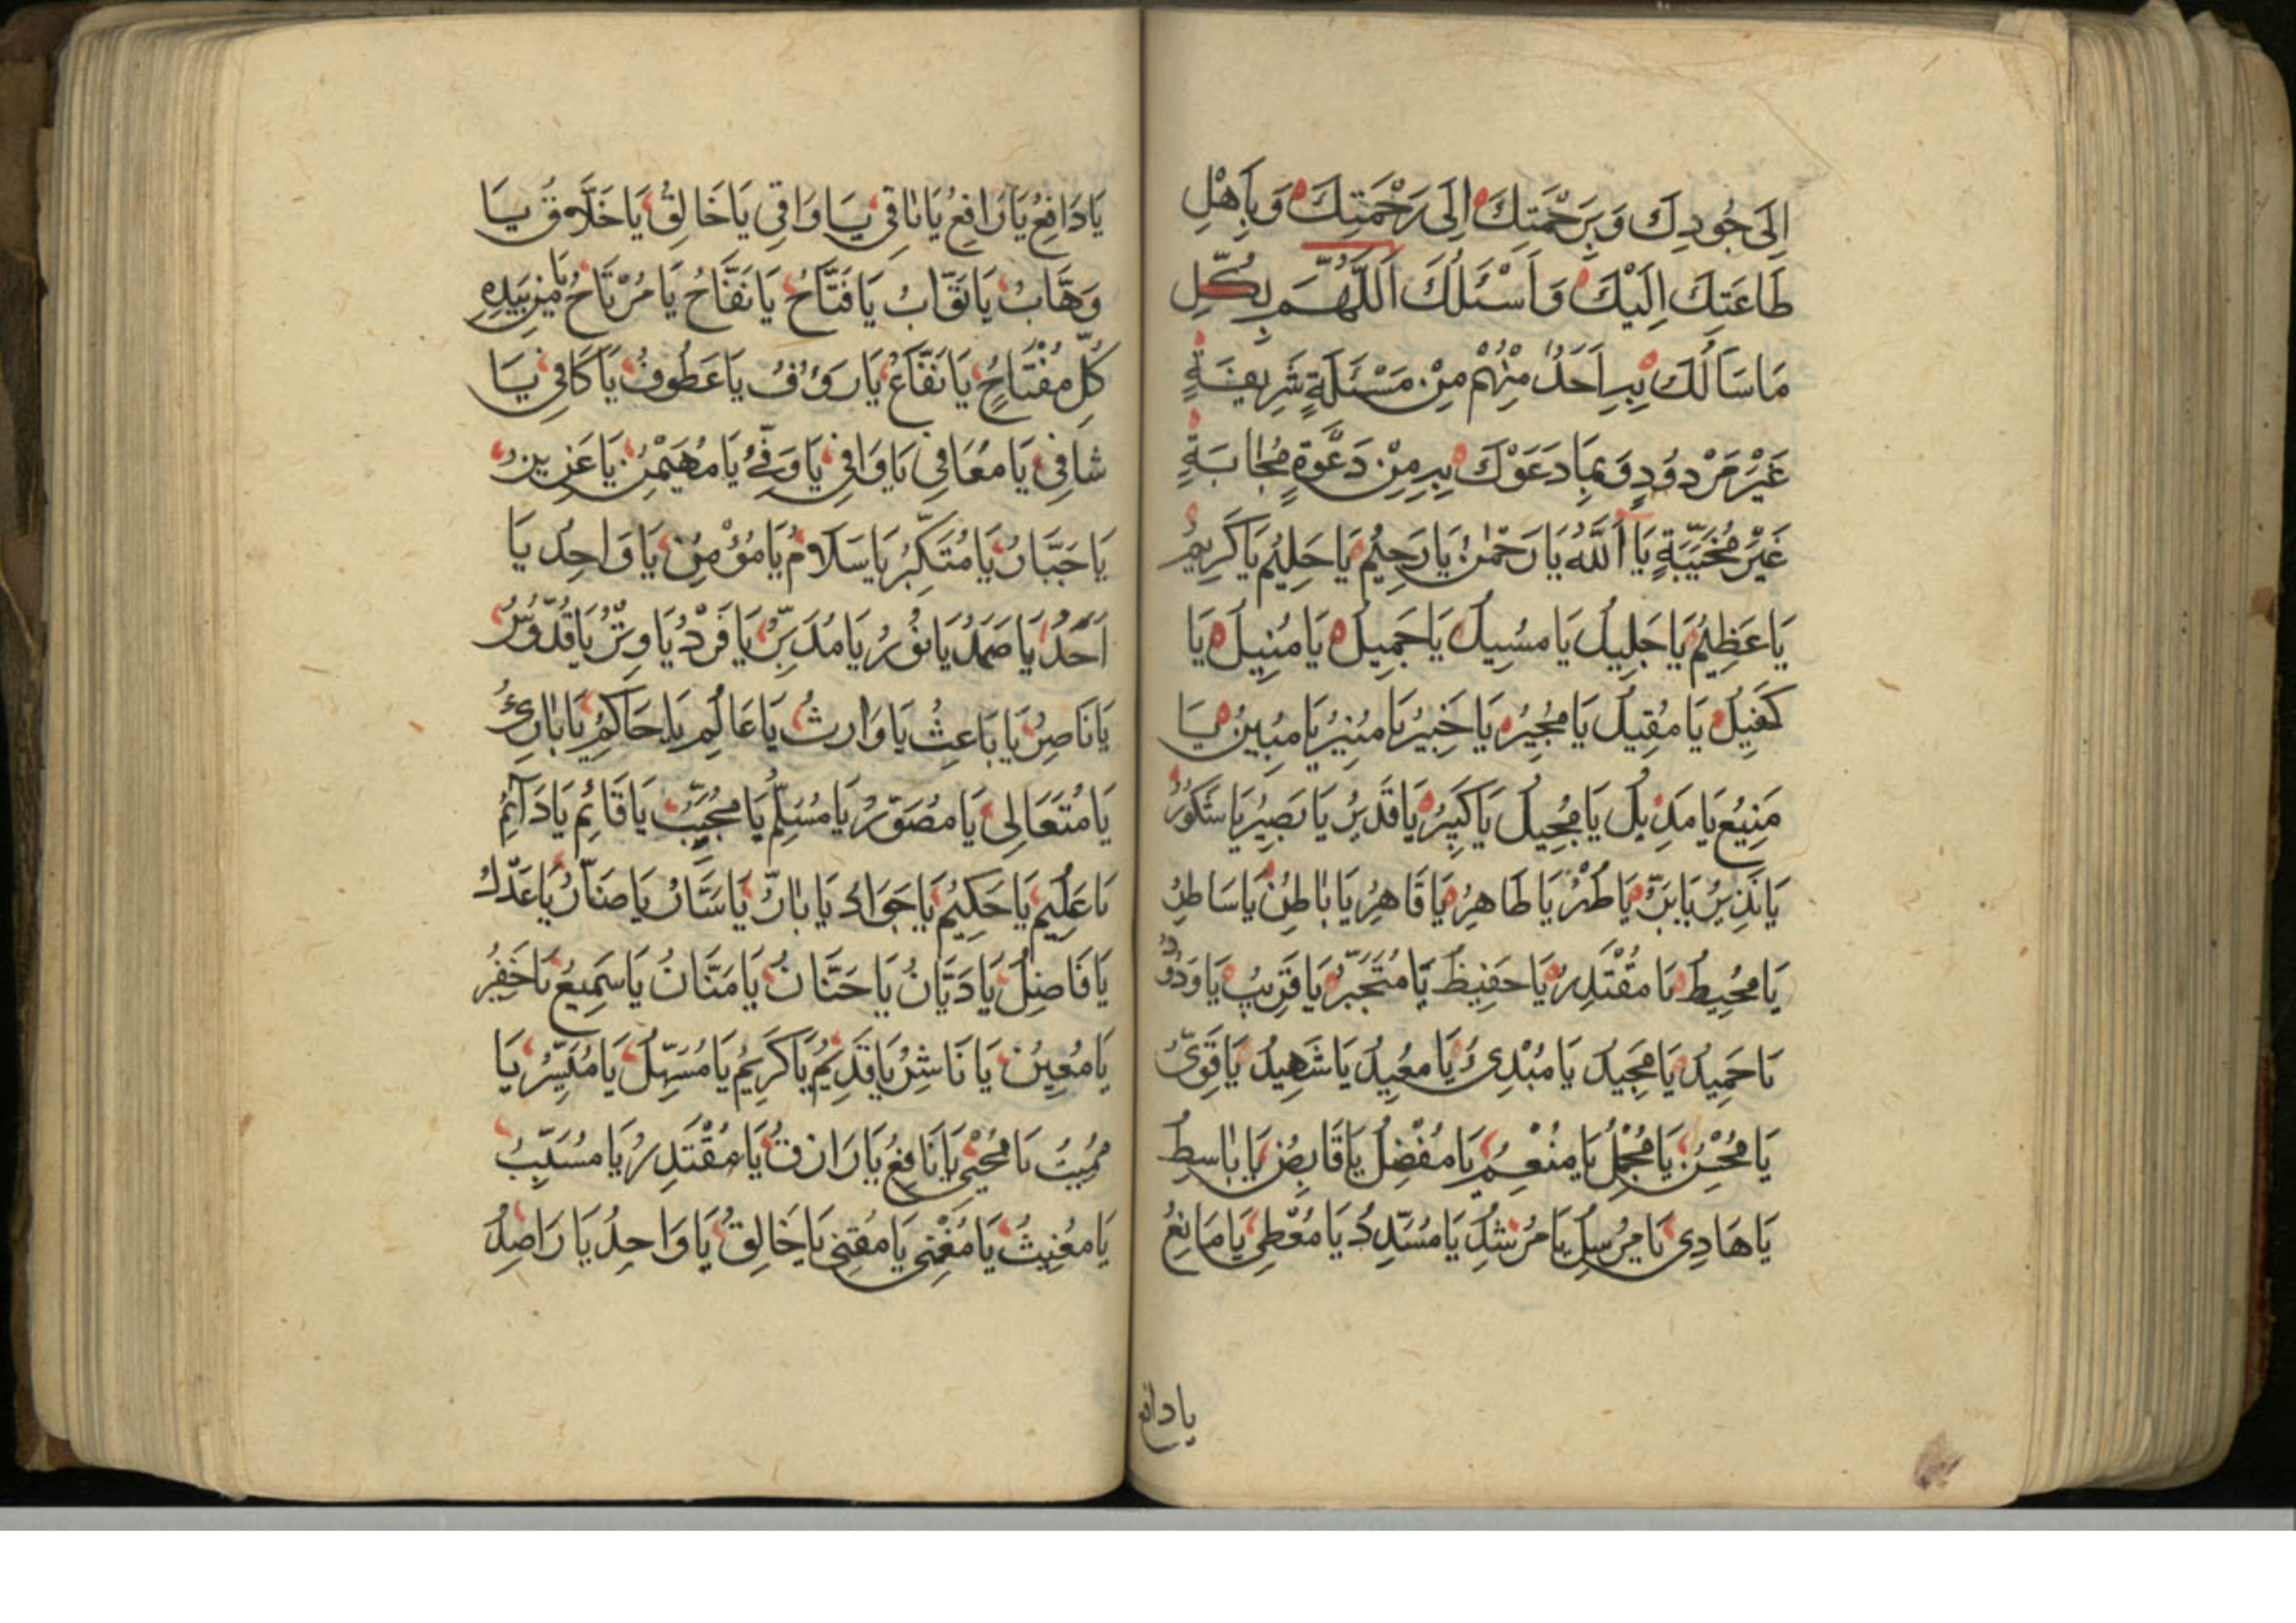 اِلَى جُودِكَ وَبِرَحْمَتِكَ اِلَى رَحْمَتِكَ وَبِاَهْلِ
طَاعَتِكَ اِلَيْكَ وَاَسْئَلُكَ اَللّٰهُمَّ بِكُلِّ
مَا سَاَلَكَ بِهِ اَحَدٌ مِنْهُمْ مِنْ مَسْئَلَةٍ شَرِيفَةٍ
غَيْرَ مَرْدُودٍ وَبِمَا دَعَوْكَ بِهِ مِنْ دَعْوَةٍ مُجَابَةٍ
غَيْرَ مُخَيَّبَةٍ يَا اَللّٰهُ يَا رَحْمٰنُ يَا رَحِيْمُ يَا حَلِيْمُ يَا كَرِيمُ
يَا عَظِيْمُ يَا جَلِيلُ يَا مَسِيلُ يَا جَمِيلُ يَا مُنِيلُ يَا
كَفِيلُ يَا مُقِيلُ يَا مُجِيرُ يَا خَبِيْرُ يَا مُنِيْرُ يَا مُبِينُ يَا
مَنِيعُ يَا مَدِيلُ يَا مُحِيلُ يَا كَبِيْرُ يَا قَدِيرُ يَا بَصِيْرُ يَا شَكُورُ
يَا نَذِيرُ يَا بَرُّ يَا طُهْرُ يَا طَاهِرُ يَا قَاهِرُ يَا بَاطِنُ يَا سَاطِرُ
يَا مُحِيطُ يَا مُقْتَدِرُ يَا حَفِيظُ يَا مُتَجَبِّرُ يَا قَرِيبُ يَا وَدُودُ
يَا حَمِيدُ يَا مَجِيدُ يَا مُبْدِئُ يَا مُعِيدُ يَا شَهِيدُ يَا قَوِيُّ
يَا مُحْسِنُ يَا مُجْمِلُ يَا مُنْعِمُ يَا مُفْضِلُ يَا قَابِضُ يَا بَاسِطُ
يَا هَادِى يَا مُرْسِلُ يَا مُرْشِدُ يَا مُسَدِّدُ يَا مُعْطِى يَا مَانِعُ
يا دافع
يَا دَافِعُ يَا رَافِعُ يَا بَاقِى يَا وَاقِى يَا خَالِقُ يَا خَلَّاقُ يَا
وَهَّابُ يَا تَوَّابُ يَا فَتَّاحُ يَا نَفَّاحُ يَا مُرْتَاحُ يَا مَنْ بِيَدِهِ
كُلُّ مِفْتَاحٍ يَا نَفَّاعُ يَا رَؤُفُ يَا عَطُوفُ يَا كَافِى يَا
شَافِى يَا مُعَافِى يَا وَافِى يَا وَفِىُّ يَا مُهَيْمِنُ يَا عَزِيزُ
يَا جَبَّارُ يَا مُتَكَبِّرُ يَا سَلَامُ يَا مُؤْمِنُ يَا وَاحِدُ يَا
اَحَدُ يَا صَمَدُ يَا نُورُ يَا مُدَبِّرُ يَا فَرْدُ يَا وِتْرُ يَا قُدُّوسُ
يَا نَاصِرُ يَا بَاعِثُ يَا وَارِثُ يَا عَالِمُ يَا حَاكِمُ يَا بَارِئُ
يَا مُتَعَالِى يَا مُصَوِّرُ يَا مُسَلِّمُ يَا مُجِيبُ يَا قَائِمُ يَا دَآئِمُ
يَا عَلِيْمُ يَا حَكِيْمُ يَا جَوَادُ يَا بَارُّ يَا سَتَّارُ يَا ضَارُّ يَا عَدْلُ
يَا فَاضِلُ يَا دَيَّانُ يَا حَنَّانُ يَا مَنَّانُ يَا سَمِيعُ يَا خَفِيرُ
يَا مُعِيْنُ يَا نَاشِرُ يَا قَدِيمُ يَا كَرِيمُ يَا مُسَهِّلُ يَا مُيَسِّرُ يَا
مُمِيتُ يَا مُحْيِى يَا نَافِعُ يَا رَازِقُ يَا مُقْتَدِرُ يَا مُسَبِّبُ
يَا مُغِيثُ يَا مُغْنِى يَا مُقْنِى يَا خَالِقُ يَا وَاحِدُ يَا رَاصِدُ